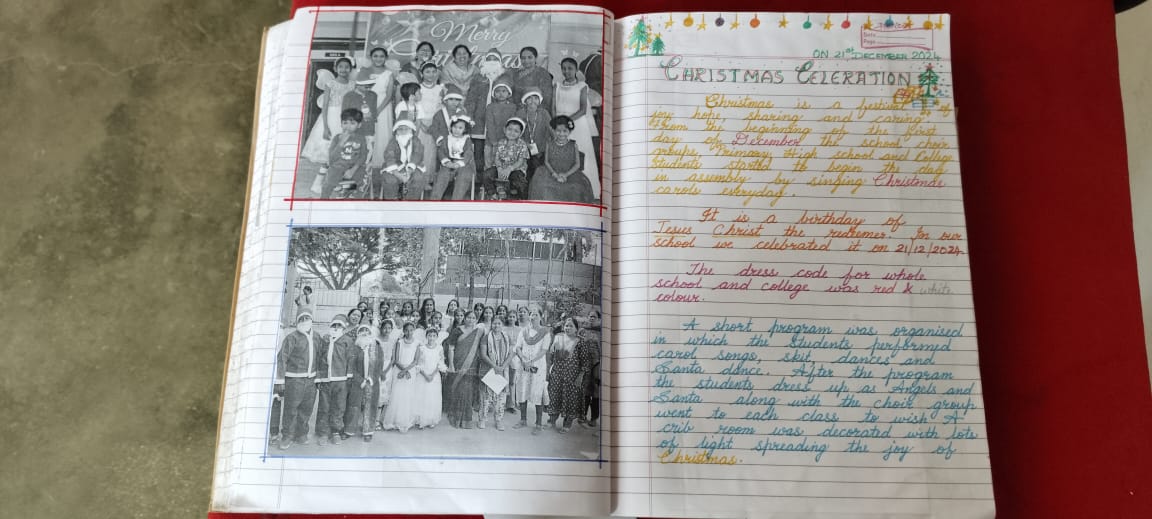 Merry
Christmas
Date
Page
ON 21st DECEMBER 2024
CHRISTMAS CELERATION
Christmas is a festival of
joy hope, sharing and caring.
From the beginning of the first
day of December the school choir
groups, Primary, High school and College
students started to begin the day
in assembly by singing Christmas
carols everyday.
It is a birthday of
Jesus Christ the redeemer. In our
school we celebrated it on 21/12/2024
The dress code for whole
school and college was red & white
colour.
A short program was organised
in which the students performed
carol songs, skit, dances and
Santa dance. After the program
the students dress up as Angels and
Santa along with the choir group
went to each class to wish A
crib room was decorated with lots
of light spreading the joy of
Christmas.